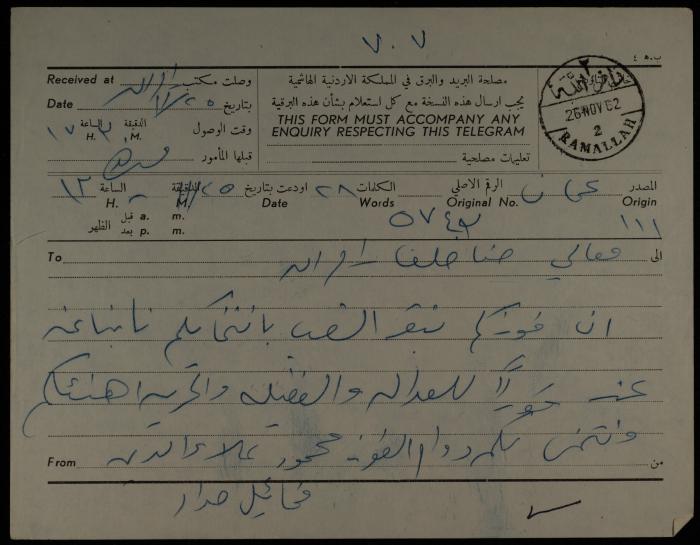 ٧٠٧
ب.ه ٤
Received at وصلت مكتب رام الله
Date ١١/٢٥ بتاريخ
H. الساعة ١٧ M. الدقيقة ٣٠ وقت الوصول
قبلها المأمور
مصلحة البريد والبرق في المملكة الاردنية الهاشمية
يجب ارسال هذه النسخة مع كل استعلام بشأن هذه البرقية
THIS FORM MUST ACCOMPANY ANY
ENQUIRY RESPECTING THIS TELEGRAM
تعليمات مصلحية
رام الله
26 NOV 62
2
RAMALLAH
المصدر عمان الرقم الاصلي الكلمات ٢٨ اودعت بتاريخ ١١/٢٥ الدقيقة الساعة ١٣
Origin Original No. Words Date M. H.
١١١ ٥٧٤٩
a. m. قبل
p. m. بعد
الظهر
To الى
معالي حنا خلف رام الله
ان فوزكم بثقة الشعب بانتخابكم نائبا عنه
عنه للعدالة والفضيلة والحرية اهنئكم
From ونتمنى لكم دوام الفوز محمود علاء الدين من
ميخائيل حداد